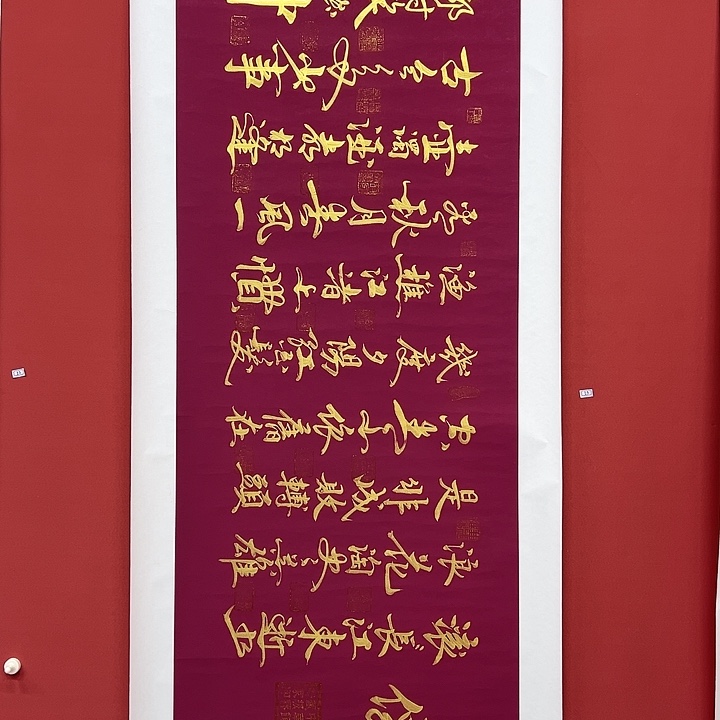 滚〻長江東逝水
浪花淘尽英雄
是非成敗轉頭
空青山依舊在
幾度夕陽紅白髮
漁樵江渚上慣
看秋月春風一
壺濁酒喜相逢
古今多少事
都付笑談中